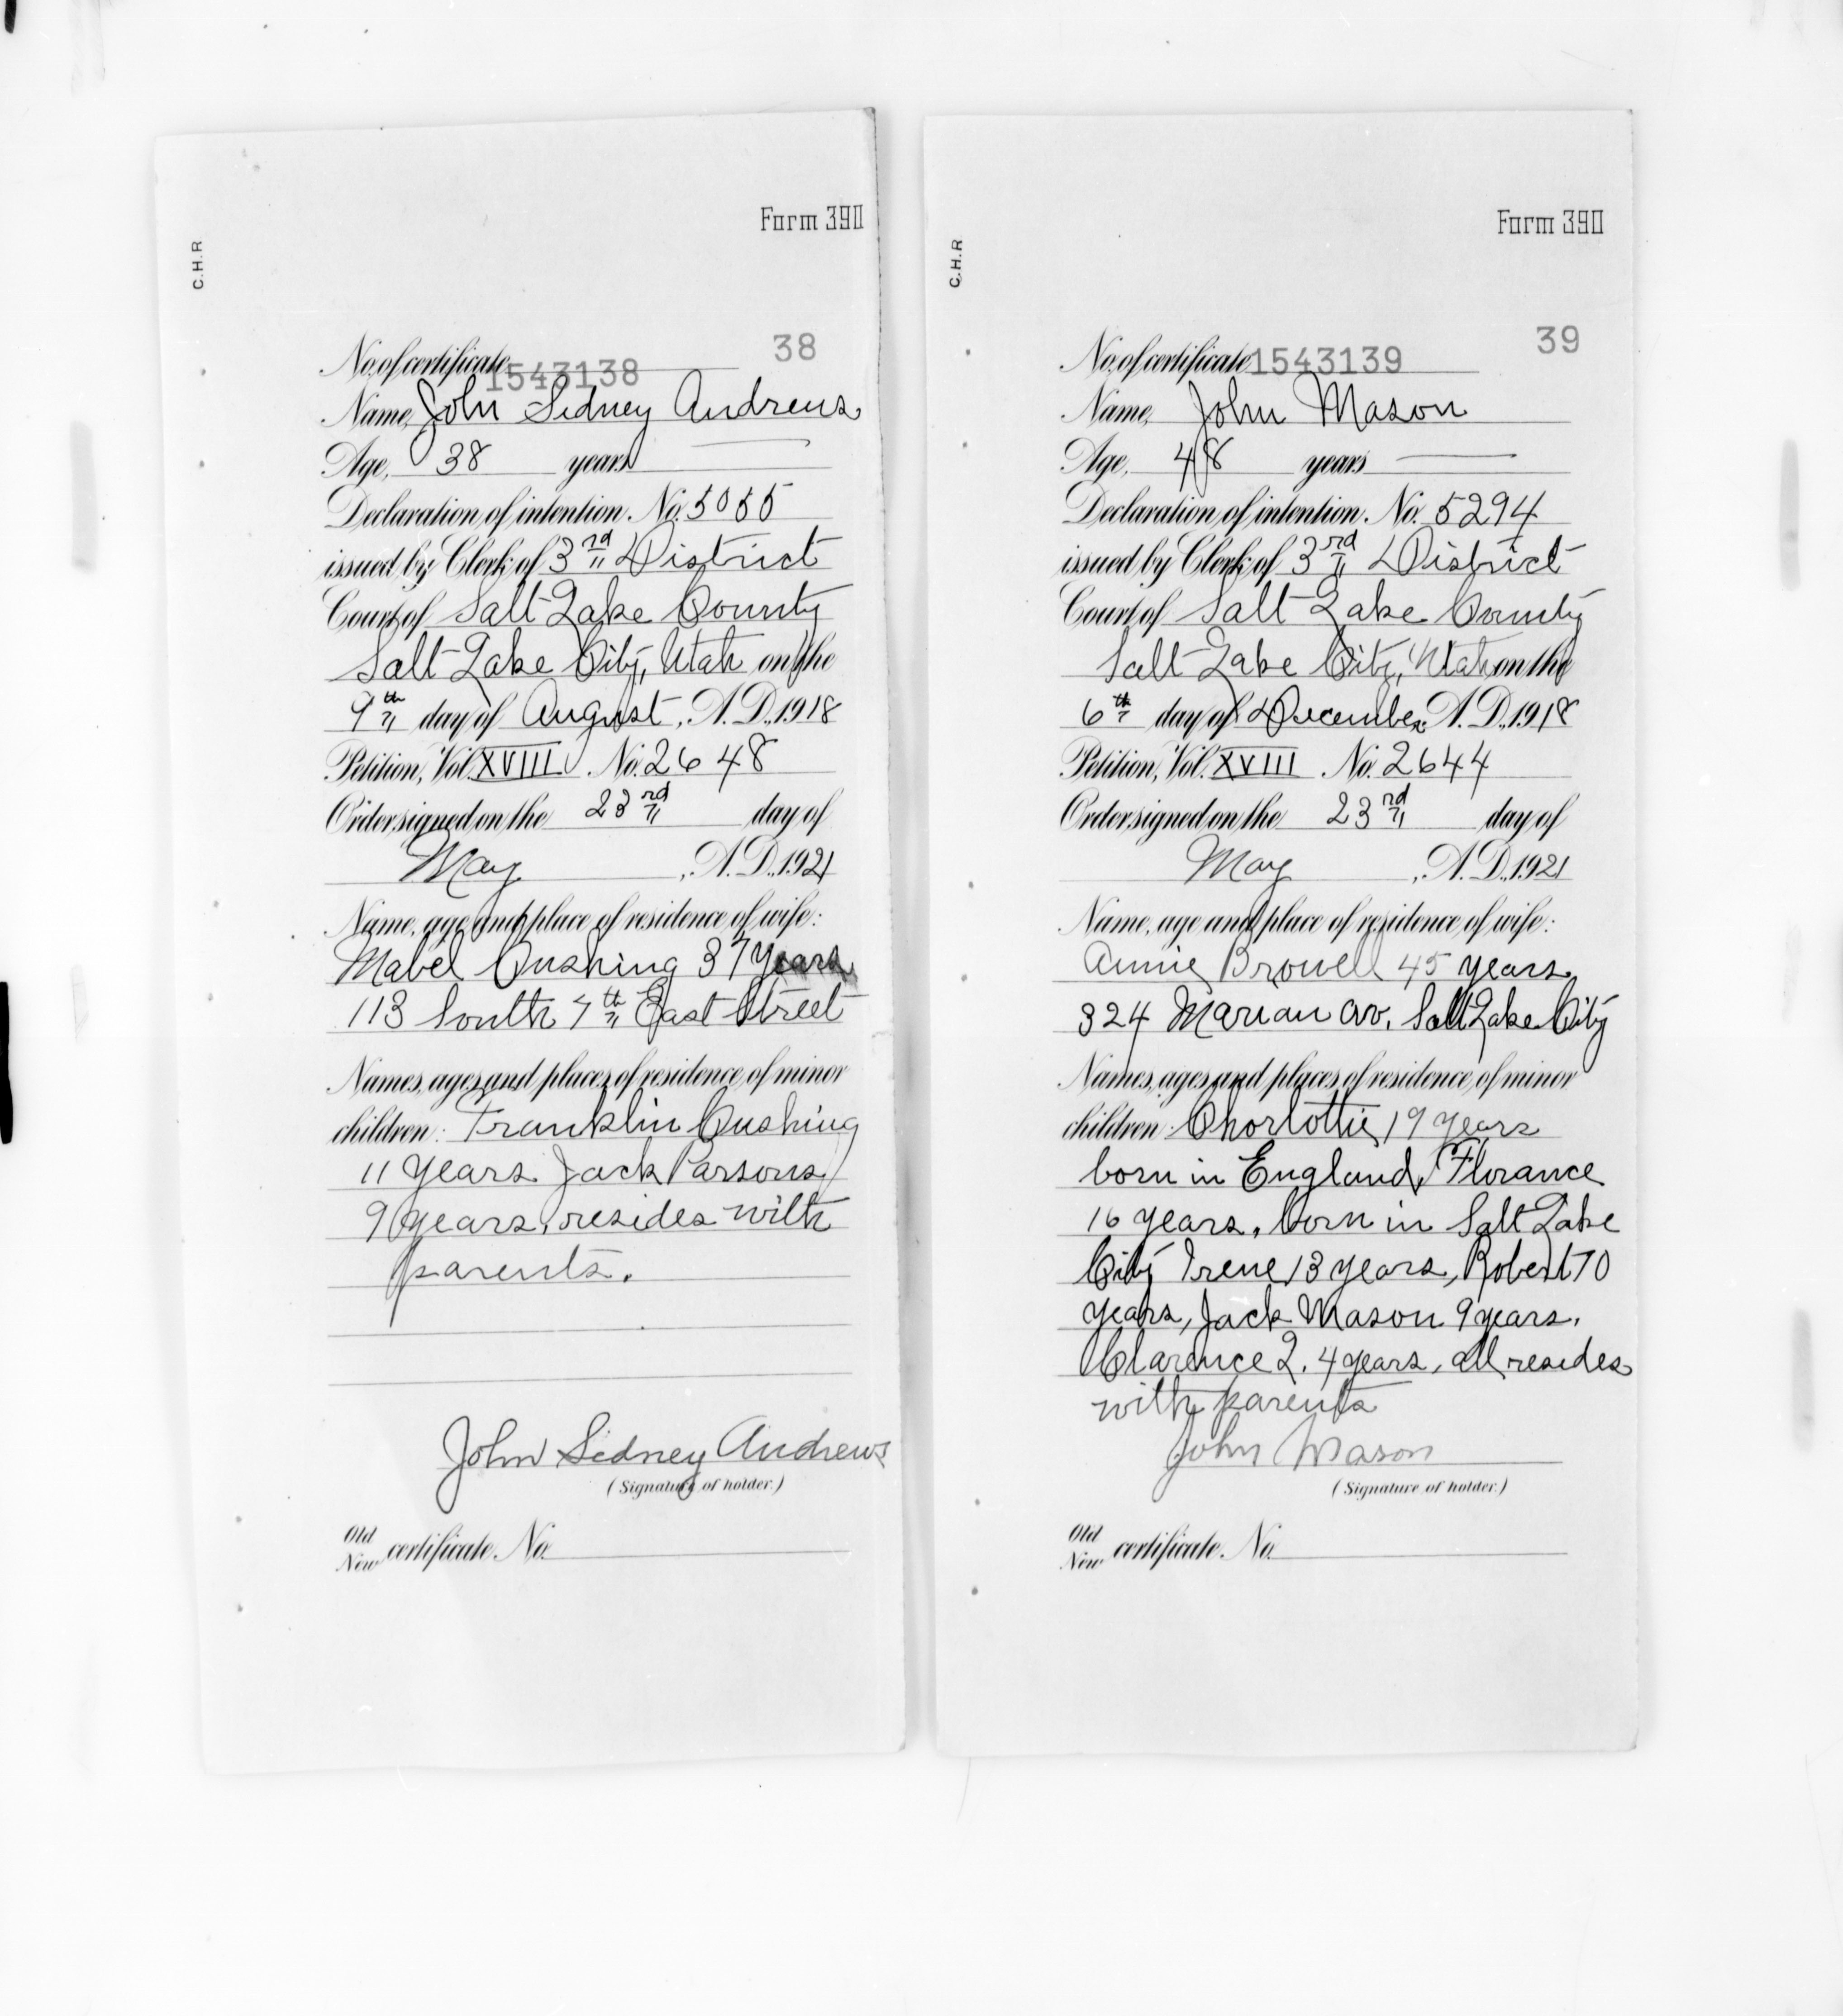 Form 390
C.H.R
38
No. of certificate 1543138
Name, John Sidney Andrews
Age, 38 years
Declaration of intention, No. 5055
issued by Clerk of 3rd District
Court of Salt Lake County
Salt Lake City, Utah on the
9th day of August, A.D. 1918
Petition, Vol. XVIII No. 2648
Order signed on the 23rd day of
May, A.D. 1921
Name, age and place of residence of wife:
Mabel Cushing 37 years
113 South 7th East Street
Names, ages and places of residence of minor
children: Franklin Cushing
11 years Jack Parsons
9 years, resides with
parents.
John Sidney Andrews
(Signature of holder.)
Old
New certificate No.
Form 390
C.H.R
39
No. of certificate 1543139
Name, John Mason
Age, 48 years
Declaration of intention, No. 5294
issued by Clerk of 3rd District
Court of Salt Lake County
Salt Lake City, Utah on the
6th day of December A.D. 1918
Petition, Vol. XVIII No. 2644
Order signed on the 23rd day of
May, A.D. 1921
Name, age and place of residence of wife:
Annie Browell 45 years
324 Marian av. Salt Lake City
Names, ages and places of residence of minor
children: Chorlottie, 19 years
born in England, Florance
16 years, born in Salt Lake
City Irene 13 years, Robert 10
years, Jack Mason 9 years.
Clarence L. 4 years, all resides
with parents
John Mason
(Signature of holder.)
Old
New certificate No.